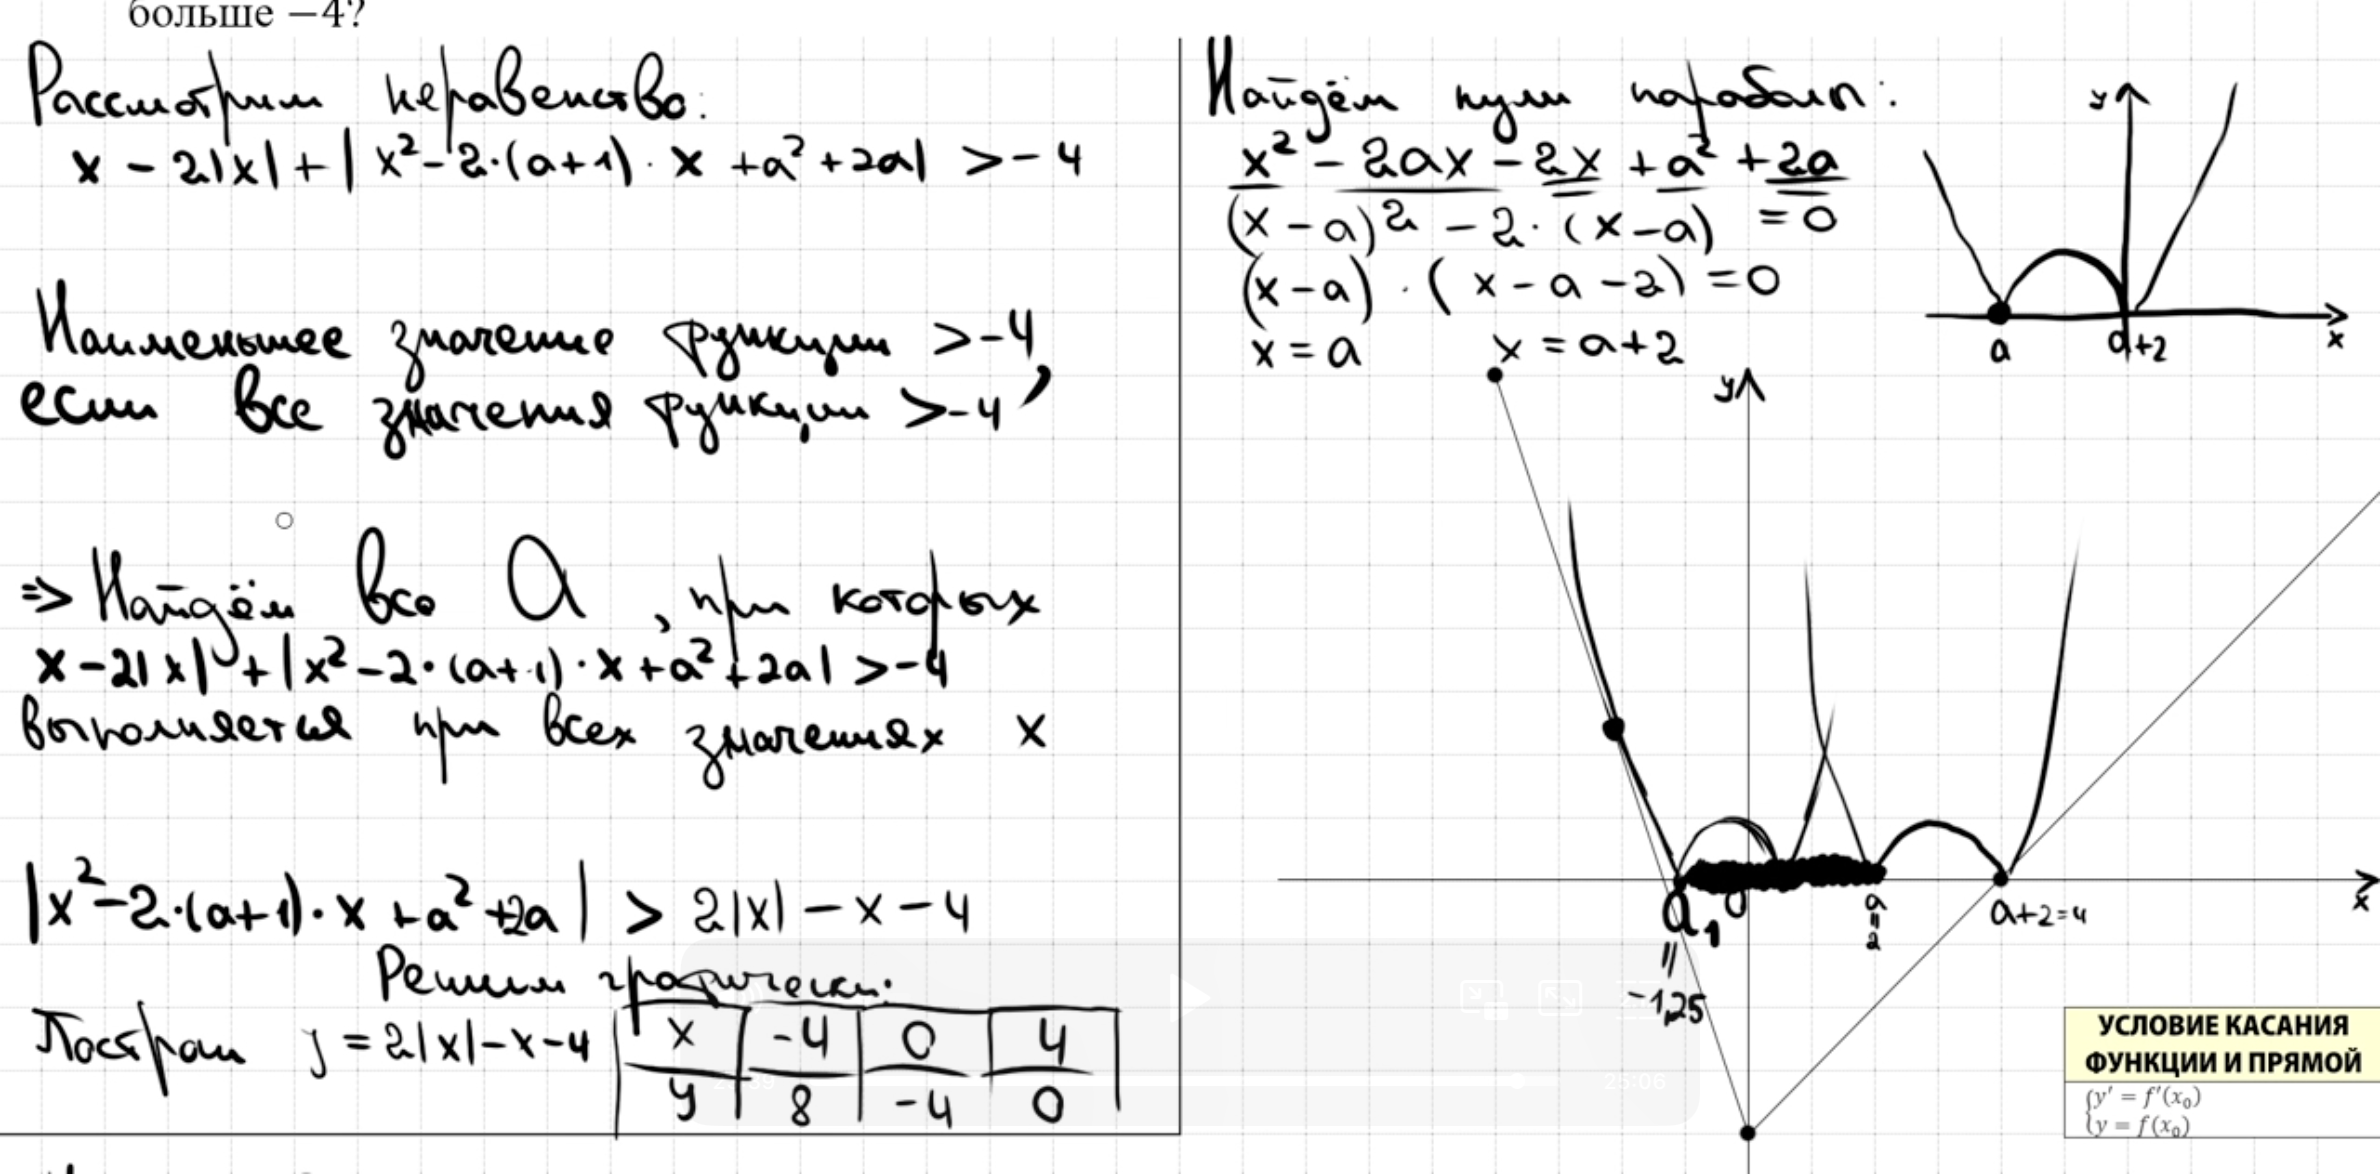 больше −4?
Рассмотрим неравенство:
x - 2|x| + |x² - 2·(a+1)·x + a² + 2a| > -4
Наименьшее значение функции > -4,
если все значения функции > -4
⇒ Найдём все a, при которых
x - 2|x| + |x² - 2·(a+1)·x + a² + 2a| > -4
выполняется при всех значениях x
|x² - 2·(a+1)·x + a² + 2a| > 2|x| - x - 4
Решим графически:
Построим y = 2|x| - x - 4
x -4 0 4
y 8 -4 0
25:06
Найдём нули параболы:
x² - 2ax - 2x + a² + 2a
(x - a)² - 2·(x - a) = 0
(x - a)·(x - a - 2) = 0
x = a x = a+2
y
a a+2 x
y
a₁ 0 a a+2=4 x
= 2
= -1,25
УСЛОВИЕ КАСАНИЯ
ФУНКЦИИ И ПРЯМОЙ
{y′ = f′(x₀)
{y = f(x₀)